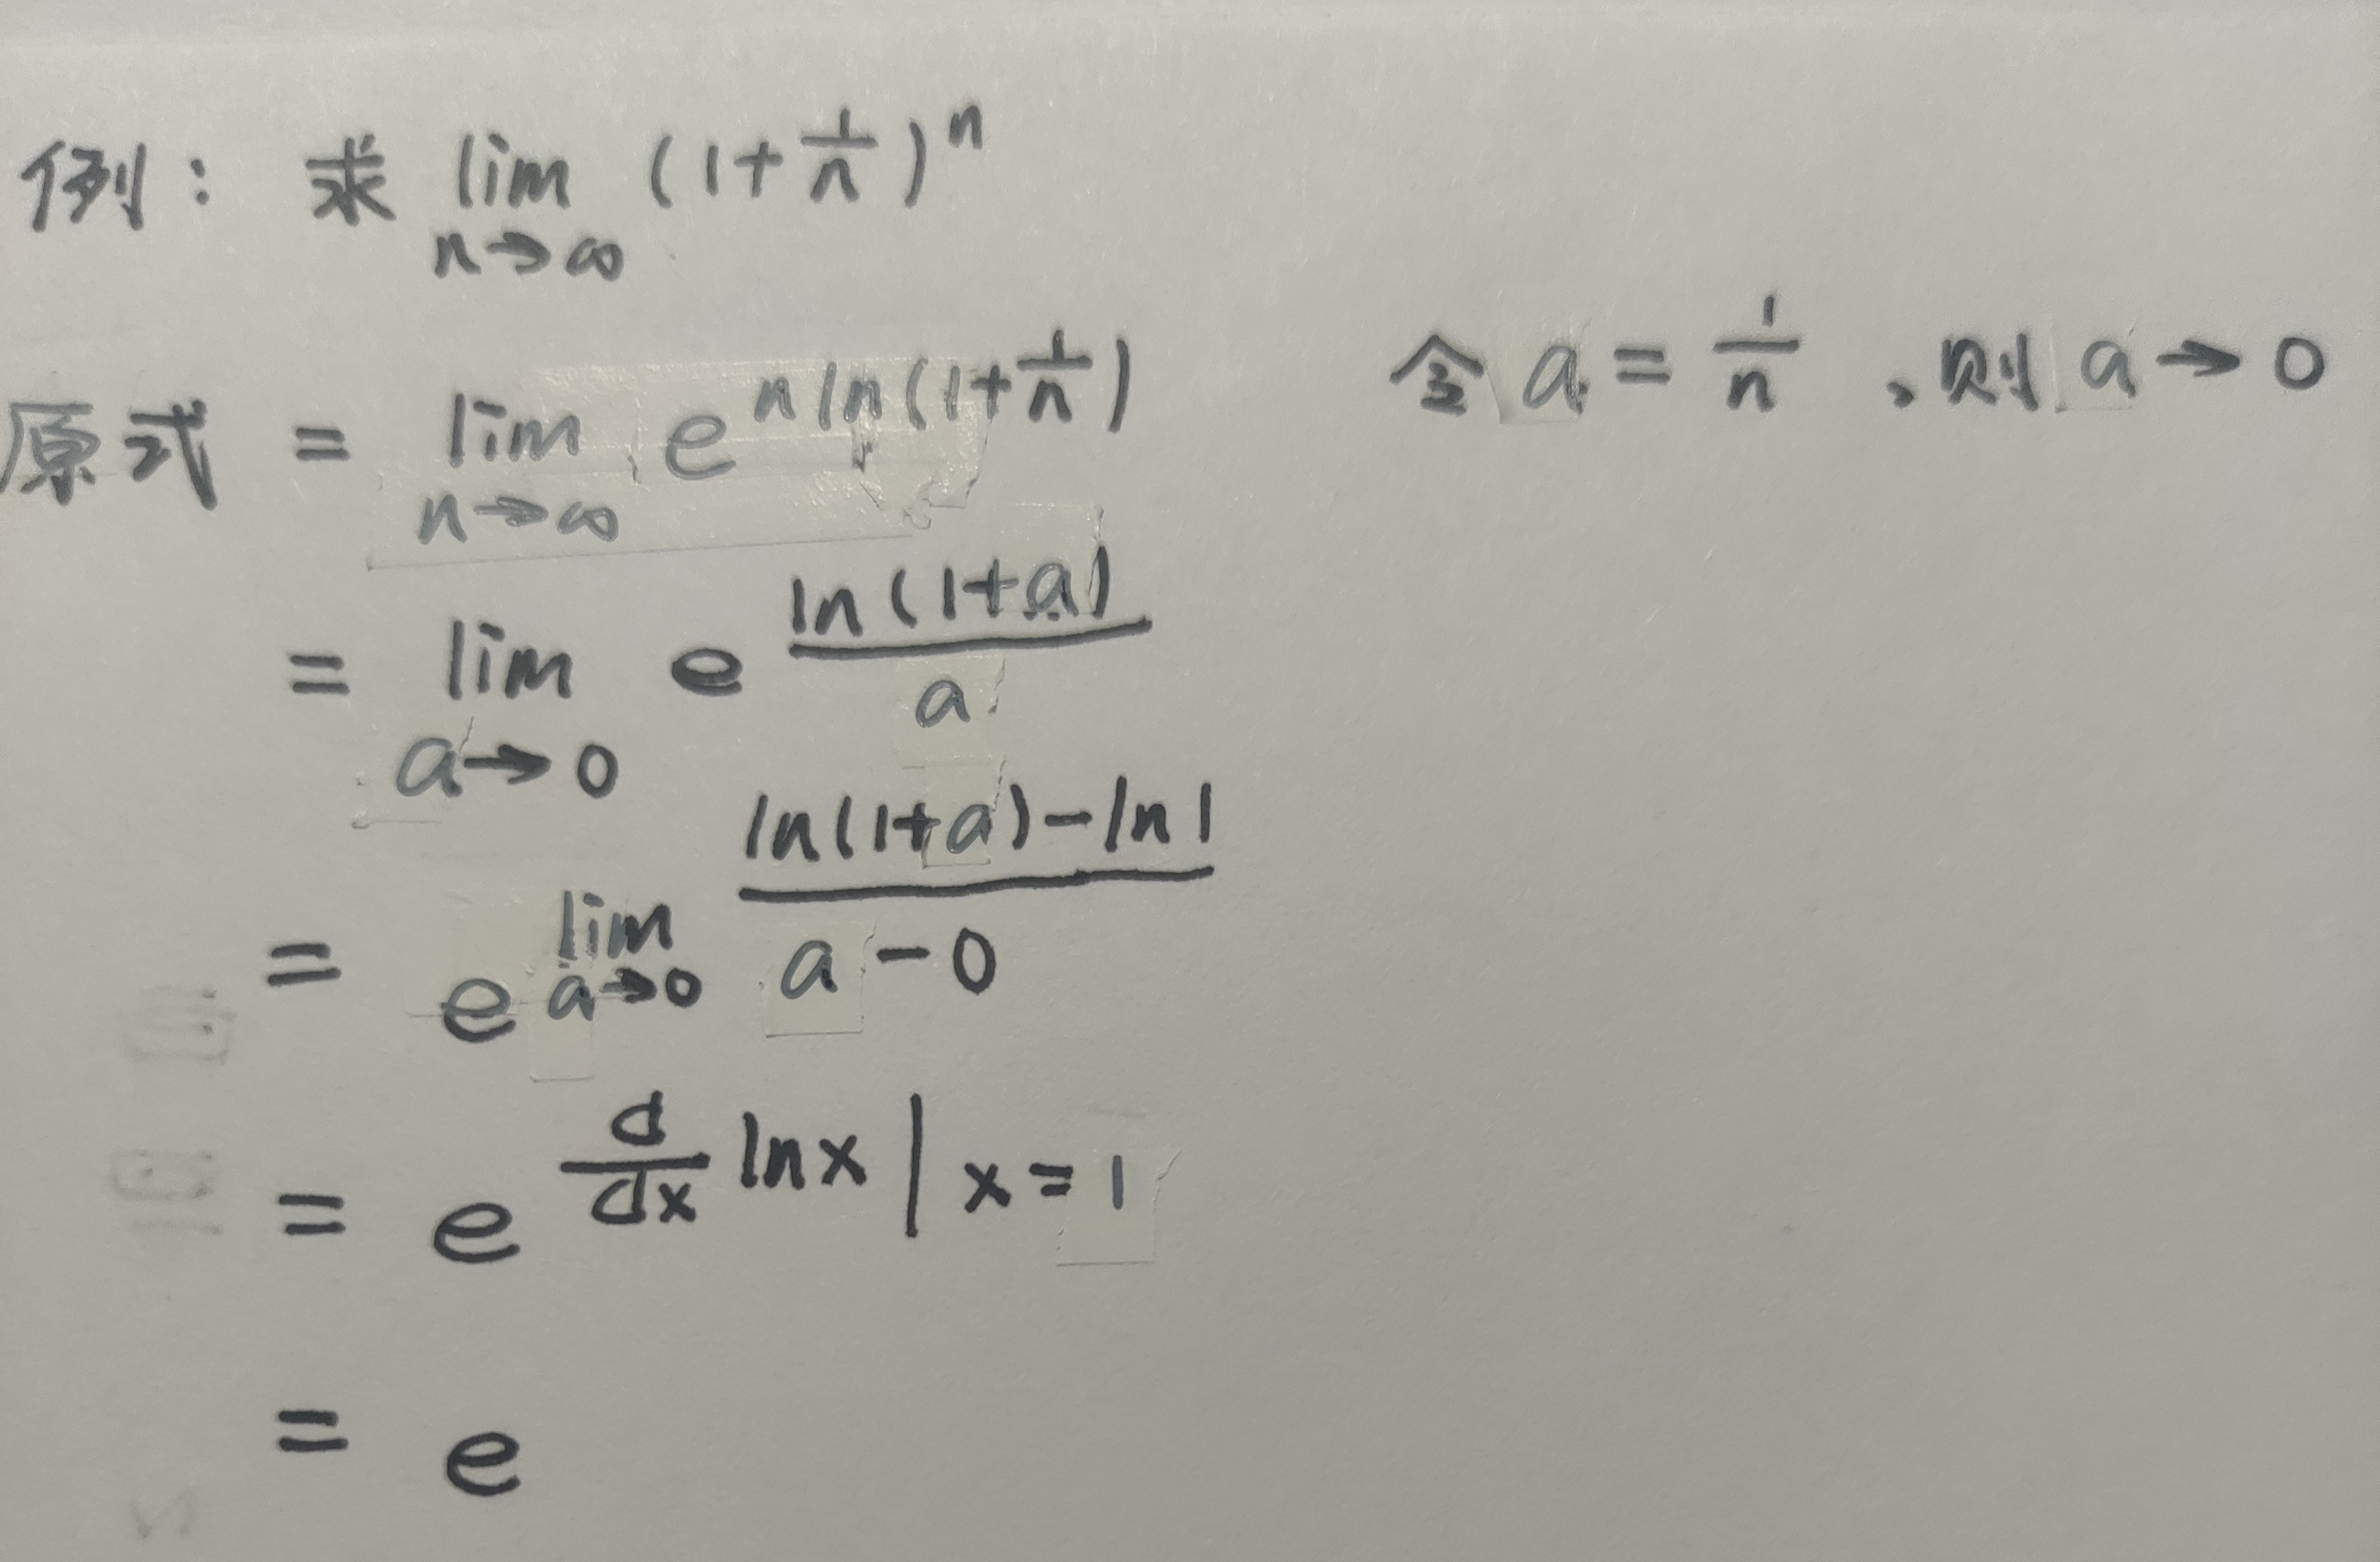 例: 求 lim n→∞ (1+1/n)^n
原式 = lim n→∞ e^(n ln(1+1/n))    令 a = 1/n , 则 a → 0
= lim a→0 e^(ln(1+a)/a)
= e^(lim a→0 (ln(1+a)-ln1)/(a-0))
= e^(d/dx lnx | x=1)
= e